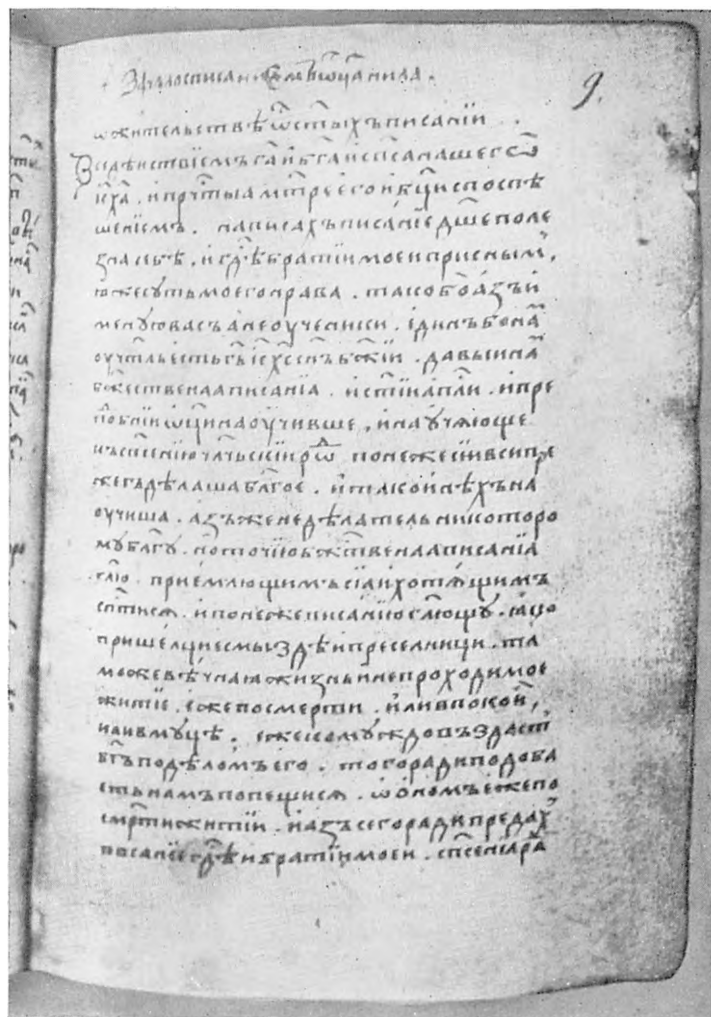 9.
ѡ жительствѣ ѿ ст҃ыхъ писанїи .
Въдѣиствїемъ г҃а и б҃га и сп҃са нашего
іс҃ х҃а . и пр҃чтыа м҃тре его и б҃ци споспѣ
шенїемъ . написахъ писанїе д҃шеполе
зна себѣ , и г҃дѣ братїи моеи присным ,
юже суть моего нрава . тако бо азъ и
меную васъ а не оученики . единъ бо на
оучт҃ль есть г҃ь іс҃ х҃с с҃нъ б҃жїи . давыи на
б҃жественаа писанїа . и ст҃їи ап҃ли . и пре
пⷣобнїи ѡц҃и наоучивше , и научяюще
къ сп҃сенїю ч҃лчьскїи рѡⷣ понеже сїи вси пре
жегъ дѣлаша бл҃гое . и тако и нѣхъ на
оучиша . азъ же не дѣлатель ни которо
му бл҃гу . но точїю б҃жтвенаа писанїа
гл҃ю . приемлющимъ сїа и хотящимъ
сп҃тися . и понеже писанїю гл҃ющу . яко
пришелци есмы здѣ и преселници . та
може вѣчнаю жизнь и непроходимое
житїе . еже по смерти . или в покои ,
или в муцѣ . еже комуждо въздаст
б҃гъ по дѣломъ его . того ради подоба
еть намъ попещися . ѡ ономъ еже по
см҃рти житїи . и азъ сего ради предах
писанїе г҃дѣ и братїи моеи . сп҃сенїа ра